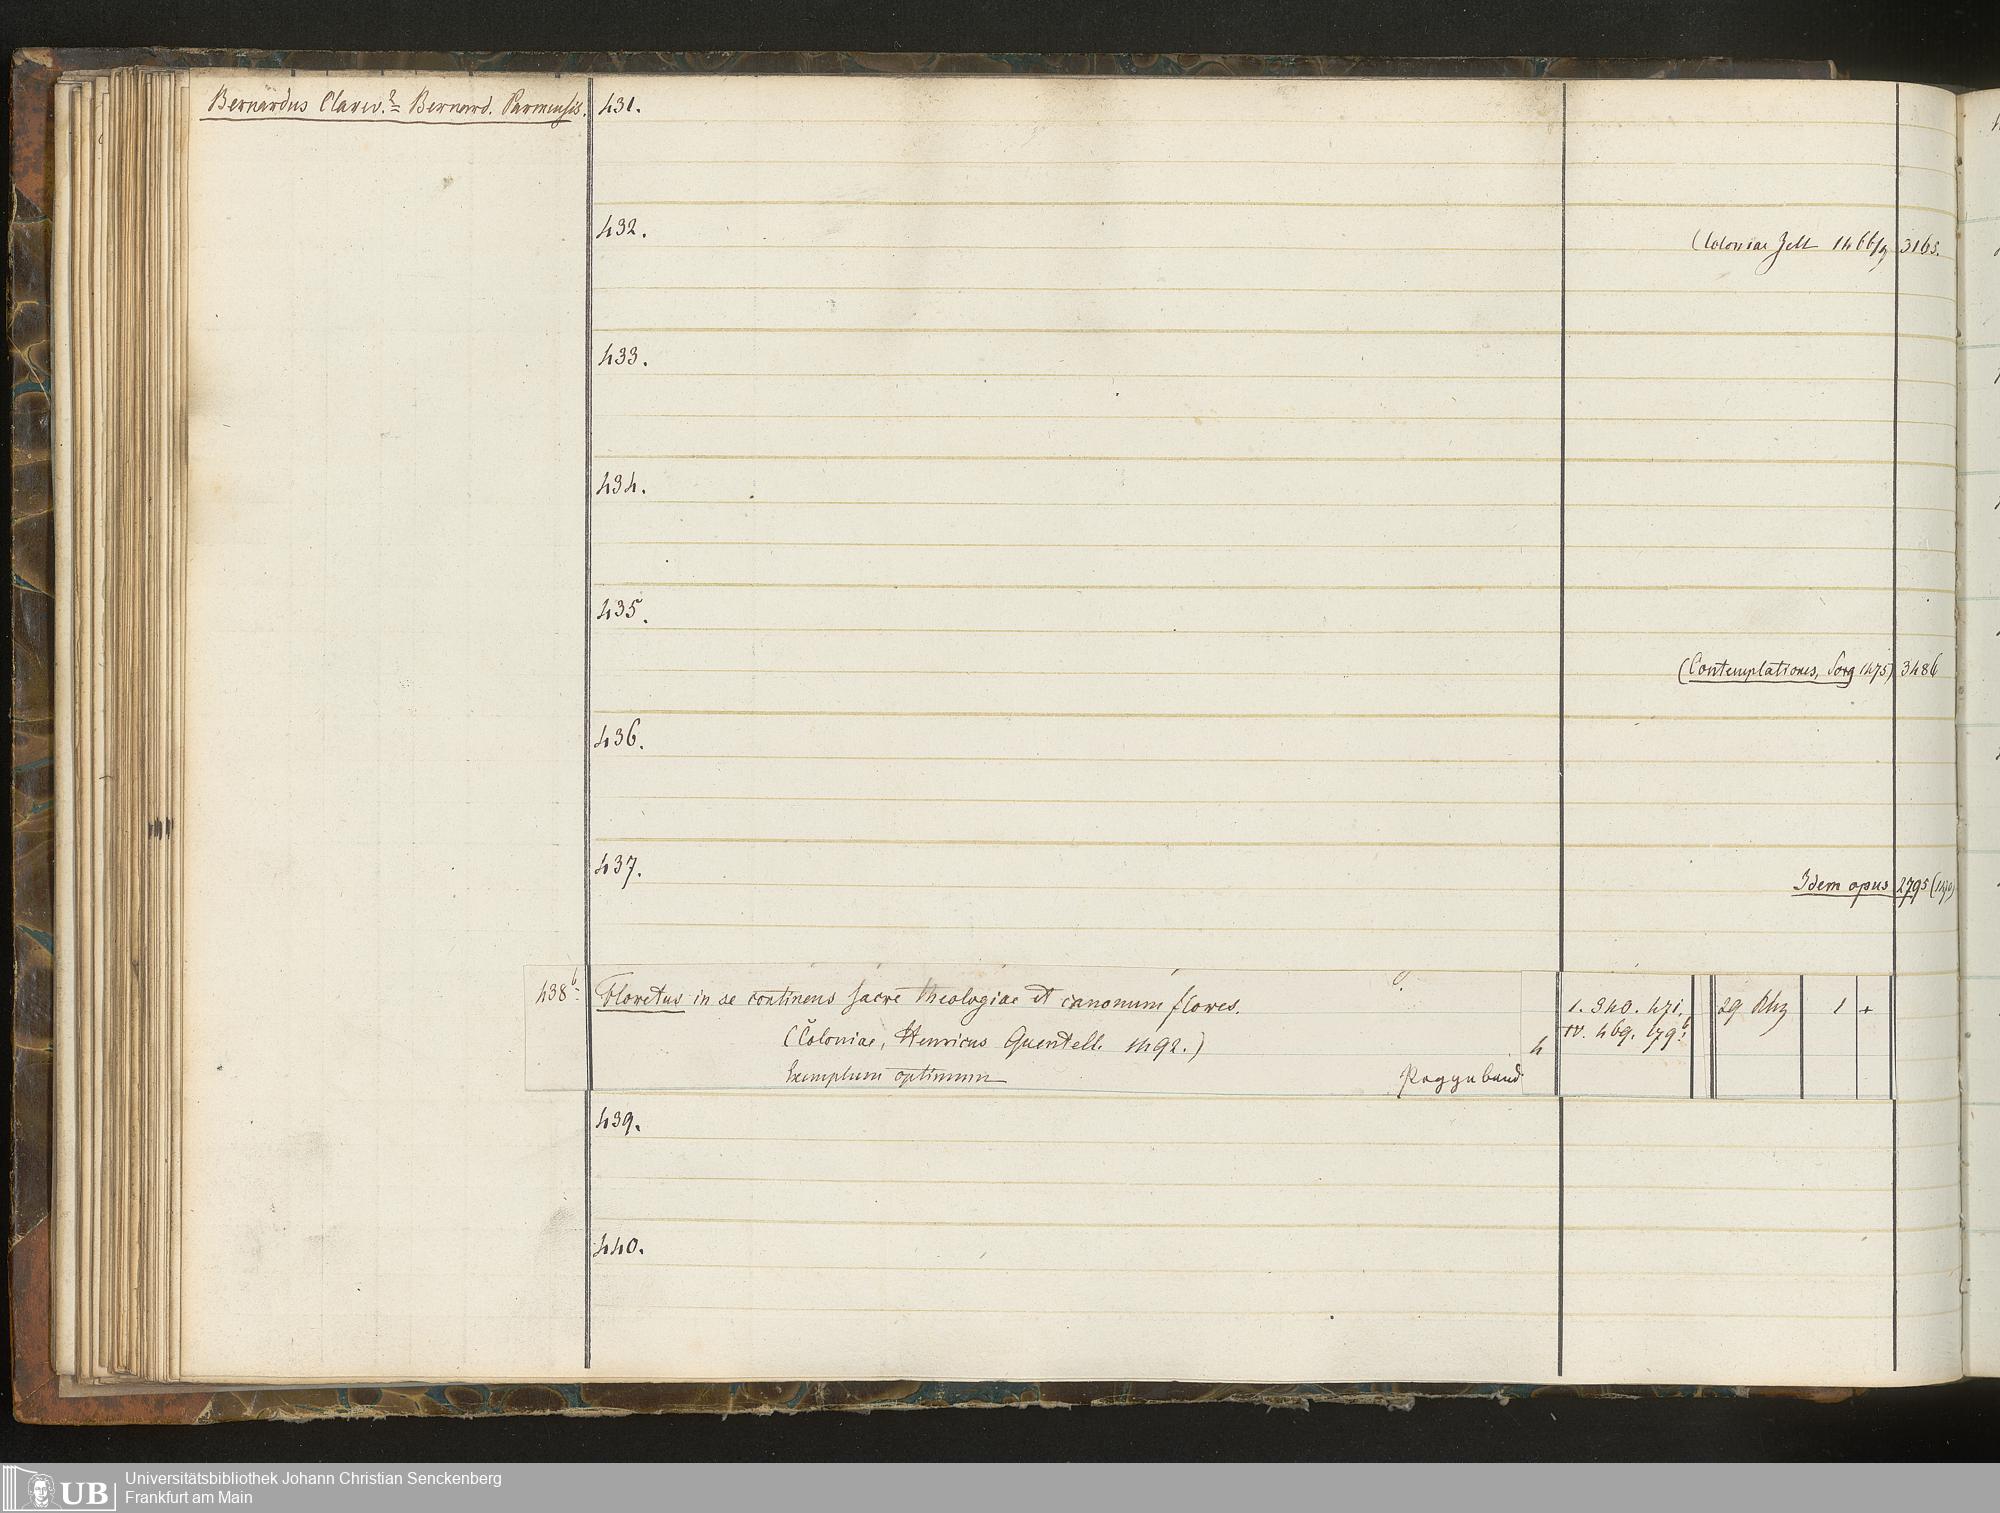 Bernardus Clarev. = Bernard. Parmensis.
431.
432.
(Coloniae Zell 1466/7 3165.
433.
434.
435.
(Contemplationes, Sorg 1475) 3486
436.
437.
Idem opus 2795 (1470)
438b. Floretus in se continens sacre theologiae et canonum flores. I. 340. 471. 29 Rhz 1 +
(Coloniae, Henricus Quentell. 1492.) 4 IV. 469. 179b.
Exemplum optimum Pappband
439.
440.
UB Universitätsbibliothek Johann Christian Senckenberg
Frankfurt am Main